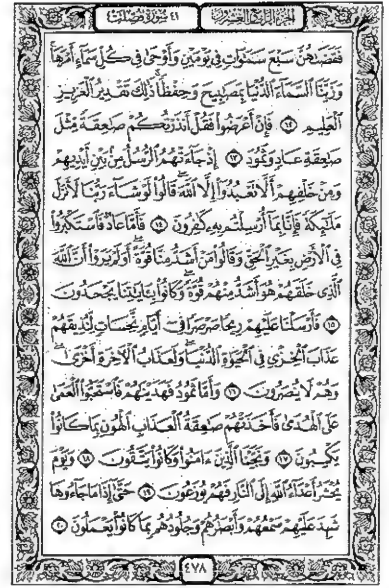 الجزء الرابع والعشرون
٤١ سورة فصلت
فَقَضَىٰهُنَّ سَبْعَ سَمَٰوَاتٍ فِى يَوْمَيْنِ وَأَوْحَىٰ فِى كُلِّ سَمَآءٍ أَمْرَهَا
وَزَيَّنَّا ٱلسَّمَآءَ ٱلدُّنْيَا بِمَصَٰبِيحَ وَحِفْظًا ذَٰلِكَ تَقْدِيرُ ٱلْعَزِيزِ
ٱلْعَلِيمِ ١٢ فَإِنْ أَعْرَضُوا۟ فَقُلْ أَنذَرْتُكُمْ صَٰعِقَةً مِّثْلَ
صَٰعِقَةِ عَادٍ وَثَمُودَ ١٣ إِذْ جَآءَتْهُمُ ٱلرُّسُلُ مِنۢ بَيْنِ أَيْدِيهِمْ
وَمِنْ خَلْفِهِمْ أَلَّا تَعْبُدُوٓا۟ إِلَّا ٱللَّهَ قَالُوا۟ لَوْ شَآءَ رَبُّنَا لَأَنزَلَ
مَلَٰٓئِكَةً فَإِنَّا بِمَآ أُرْسِلْتُم بِهِۦ كَٰفِرُونَ ١٤ فَأَمَّا عَادٌ فَٱسْتَكْبَرُوا۟
فِى ٱلْأَرْضِ بِغَيْرِ ٱلْحَقِّ وَقَالُوا۟ مَنْ أَشَدُّ مِنَّا قُوَّةً أَوَلَمْ يَرَوْا۟ أَنَّ ٱللَّهَ
ٱلَّذِى خَلَقَهُمْ هُوَ أَشَدُّ مِنْهُمْ قُوَّةً وَكَانُوا۟ بِـَٔايَٰتِنَا يَجْحَدُونَ
١٥ فَأَرْسَلْنَا عَلَيْهِمْ رِيحًا صَرْصَرًا فِىٓ أَيَّامٍ نَّحِسَاتٍ لِّنُذِيقَهُمْ
عَذَابَ ٱلْخِزْىِ فِى ٱلْحَيَوٰةِ ٱلدُّنْيَا وَلَعَذَابُ ٱلْءَاخِرَةِ أَخْزَىٰ
وَهُمْ لَا يُنصَرُونَ ١٦ وَأَمَّا ثَمُودُ فَهَدَيْنَٰهُمْ فَٱسْتَحَبُّوا۟ ٱلْعَمَىٰ
عَلَى ٱلْهُدَىٰ فَأَخَذَتْهُمْ صَٰعِقَةُ ٱلْعَذَابِ ٱلْهُونِ بِمَا كَانُوا۟
يَكْسِبُونَ ١٧ وَنَجَّيْنَا ٱلَّذِينَ ءَامَنُوا۟ وَكَانُوا۟ يَتَّقُونَ ١٨ وَيَوْمَ
يُحْشَرُ أَعْدَآءُ ٱللَّهِ إِلَى ٱلنَّارِ فَهُمْ يُوزَعُونَ ١٩ حَتَّىٰٓ إِذَا مَا جَآءُوهَا
شَهِدَ عَلَيْهِمْ سَمْعُهُمْ وَأَبْصَٰرُهُمْ وَجُلُودُهُم بِمَا كَانُوا۟ يَعْمَلُونَ ٢٠
٤٧٨